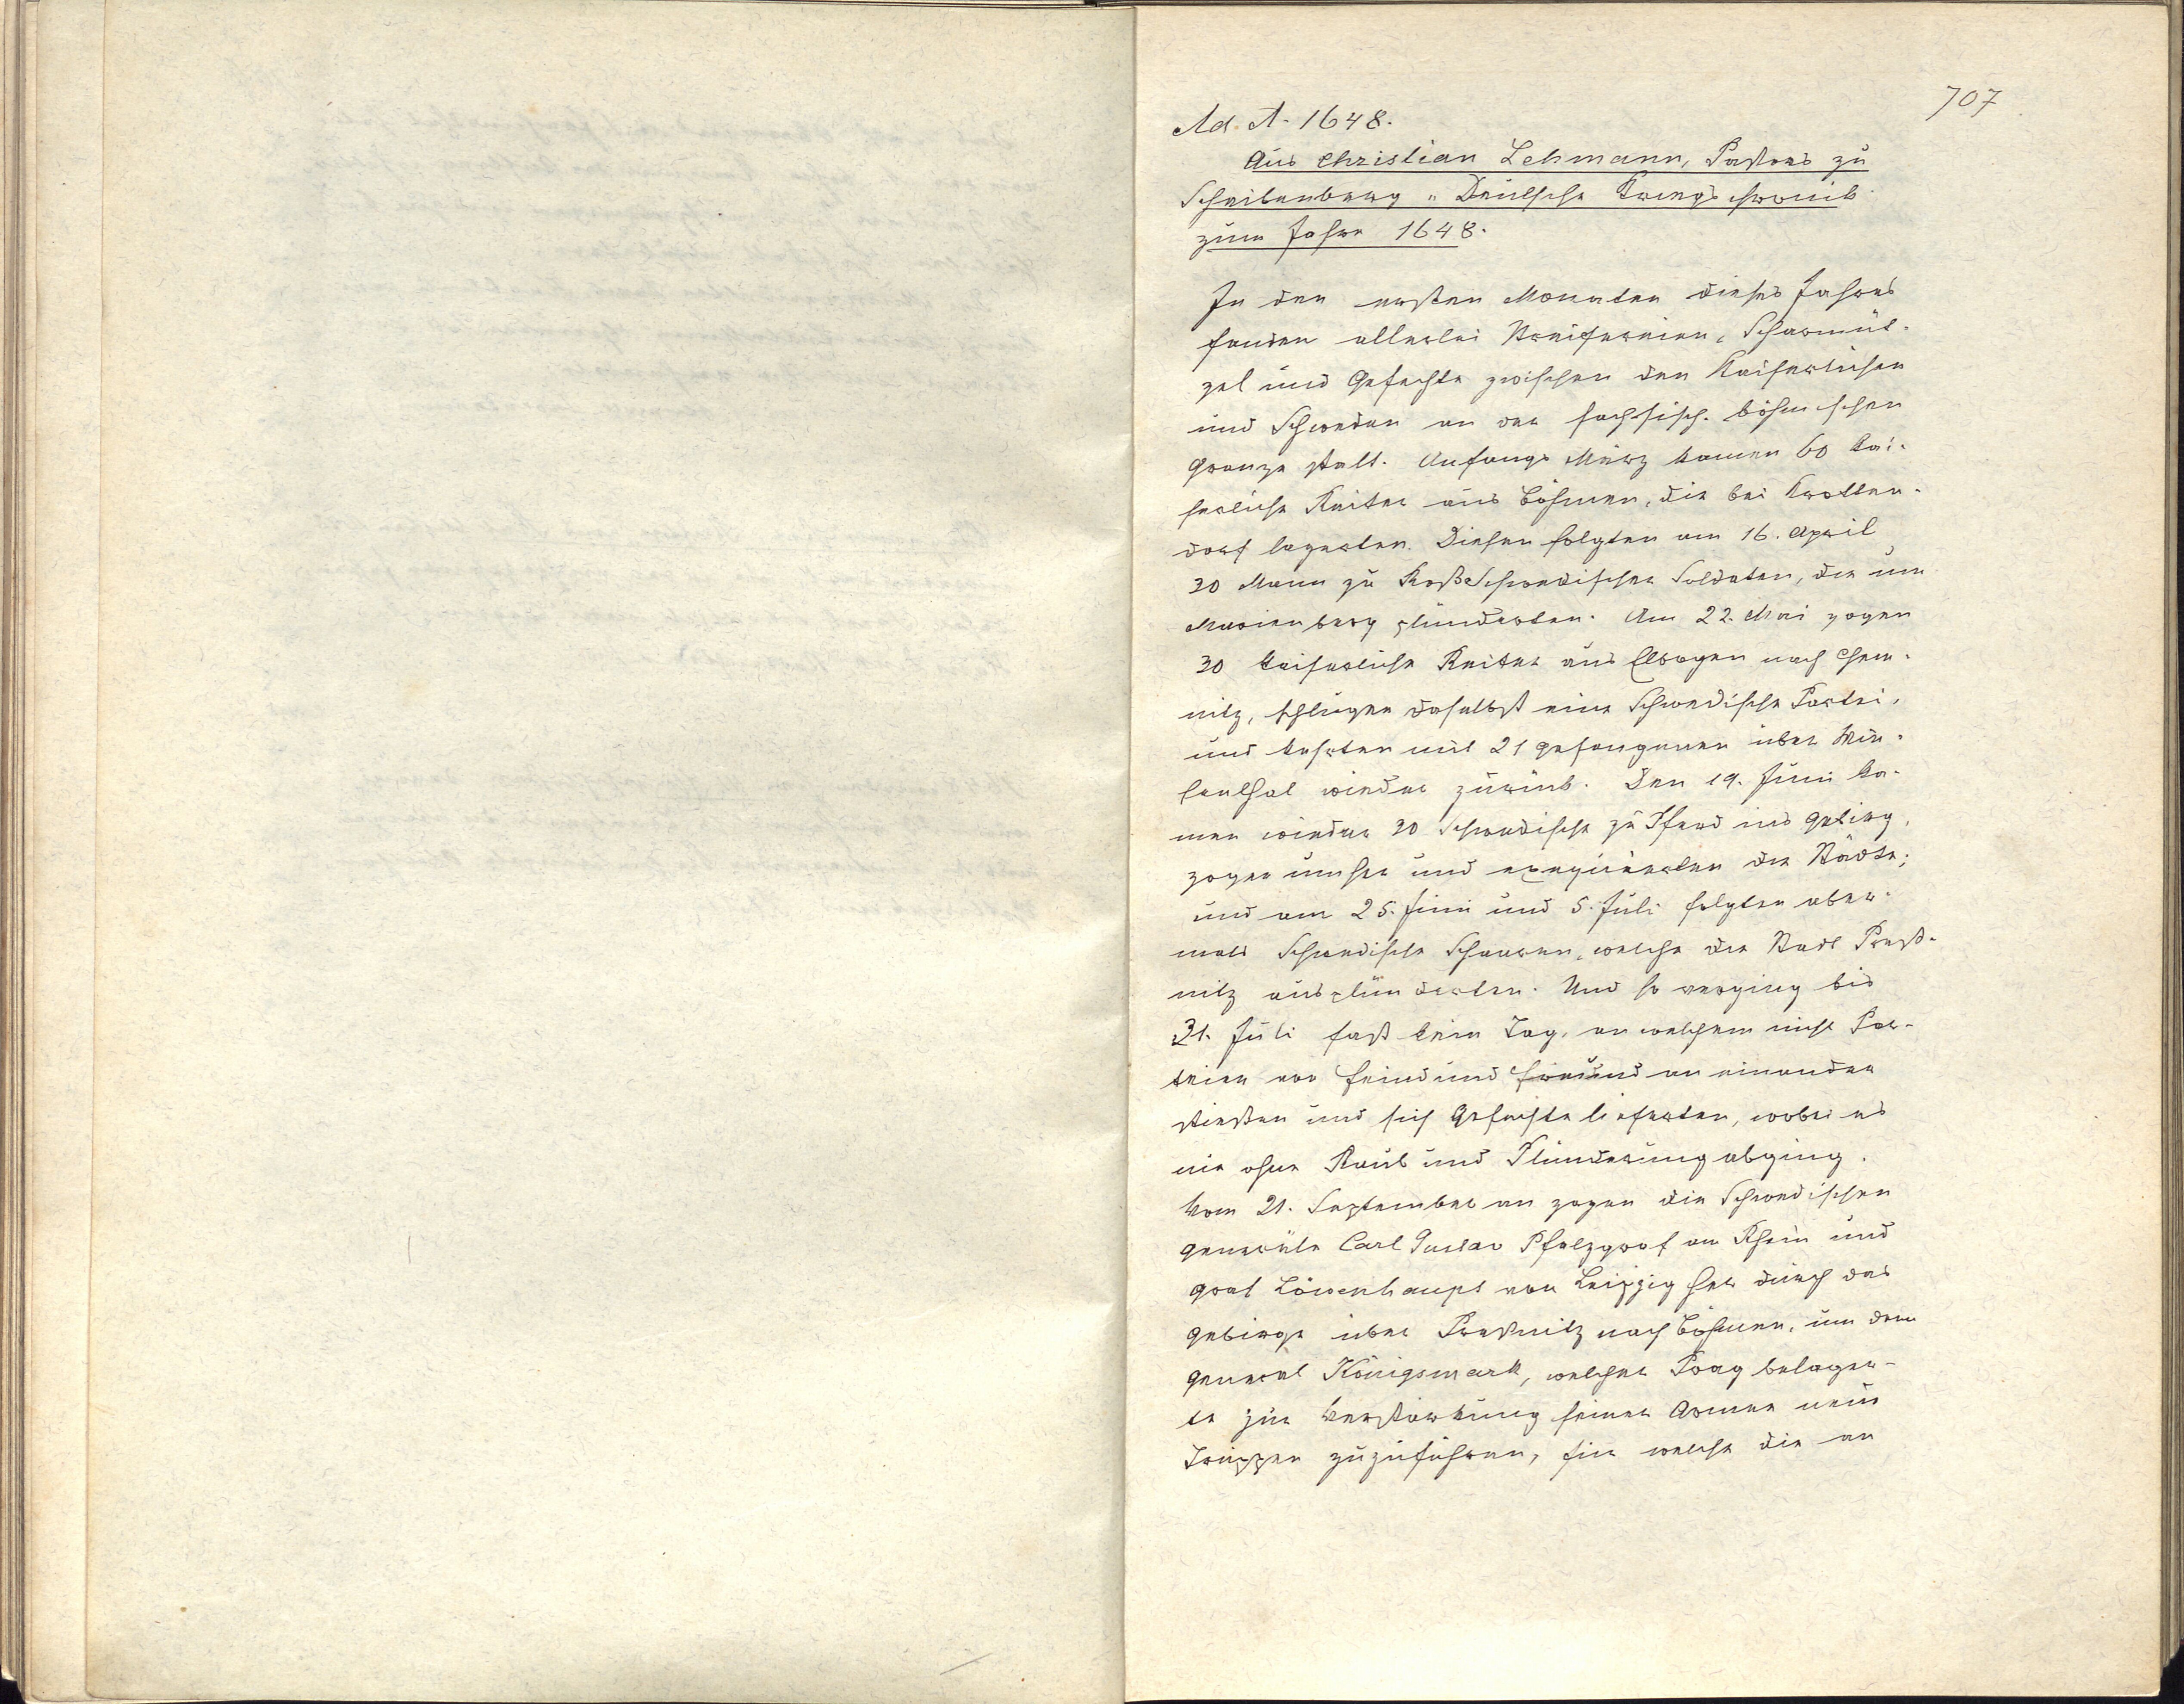 707
Ad. A. 1648.
Aus Christian Lehmann, Pastors zu
Scheibenberg „ Deutsche Kriegschronik
zum Jahre 1648.
In den ersten Monaten dieses Jahres
fanden allerlei Streifereien, Scharmüt-
zel und Gefechte zwischen den Kaiserlichen
und Schweden an der sächsisch-böhmischen
Granze statt. Anfangs März kamen 60 kai-
serliche Reiter aus Böhmen, die bei Krotten-
dorf lagerten. Diesen folgten am 16. April
30 Mann zu Roß Schwedischer Soldaten, die um
Marienberg plünderten. Am 22. Mai zogen
30 kaiserliche Reiter aus Elbogen nach Chem-
nitz, schlugen daselbst eine Schwedische Partei,
und kehrten mit 21 Gefangenen über Wie-
senthal wieder zurück. Den 19. Juni ka-
men wieder 30 Schwedische zu Pferd ins Gebirg,
zogen umher und exequierten die Städte;
und am 25. Juni und 5. Juli folgten aber-
mals Schwedische Schaaren, welche die Stadt Preß-
nitz ausplünderten. Und so verging bis
31. Juli fast kein Tag, an welchem nicht Par-
teien von Feind und Freund an einander
stießen und sich Gefechte lieferten, wobei es
nie ohne Raub und Plünderung abging.
Vom 21. September an zogen die Schwedischen
Generäle Carl Gustav Pfalzgraf am Rhein und
Graf Löwenhaupt von Leipzig her durch das
Gebirge über Preßnitz nach Böhmen, um dem
General Königsmark, welcher Prag belager-
te zur Verstärkung seiner Armee neue
Truppen zuzuführen, für welche die an